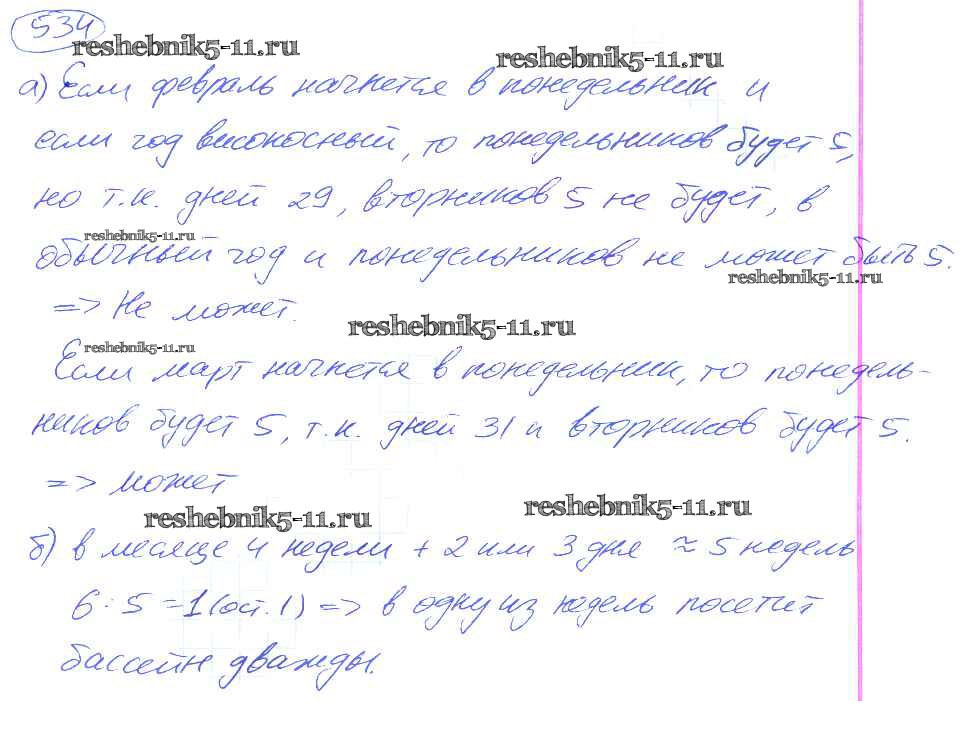 534
reshebnik5-11.ru
reshebnik5-11.ru
а) Если февраль начнется в понедельник и
если год високосный, то понедельников будет 5,
но т.к. дней 29, вторников 5 не будет, в
reshebnik5-11.ru
обычный год и понедельников не может быть 5.
reshebnik5-11.ru
=> Не может.
reshebnik5-11.ru
reshebnik5-11.ru
Если март начнется в понедельник, то понедель-
ников будет 5, т.к. дней 31 и вторников будет 5.
=> может
reshebnik5-11.ru
reshebnik5-11.ru
б) в месяце 4 недели + 2 или 3 дня ≈ 5 недель
6 : 5 = 1 (ост. 1) => в одну из недель посетит
бассейн дважды.